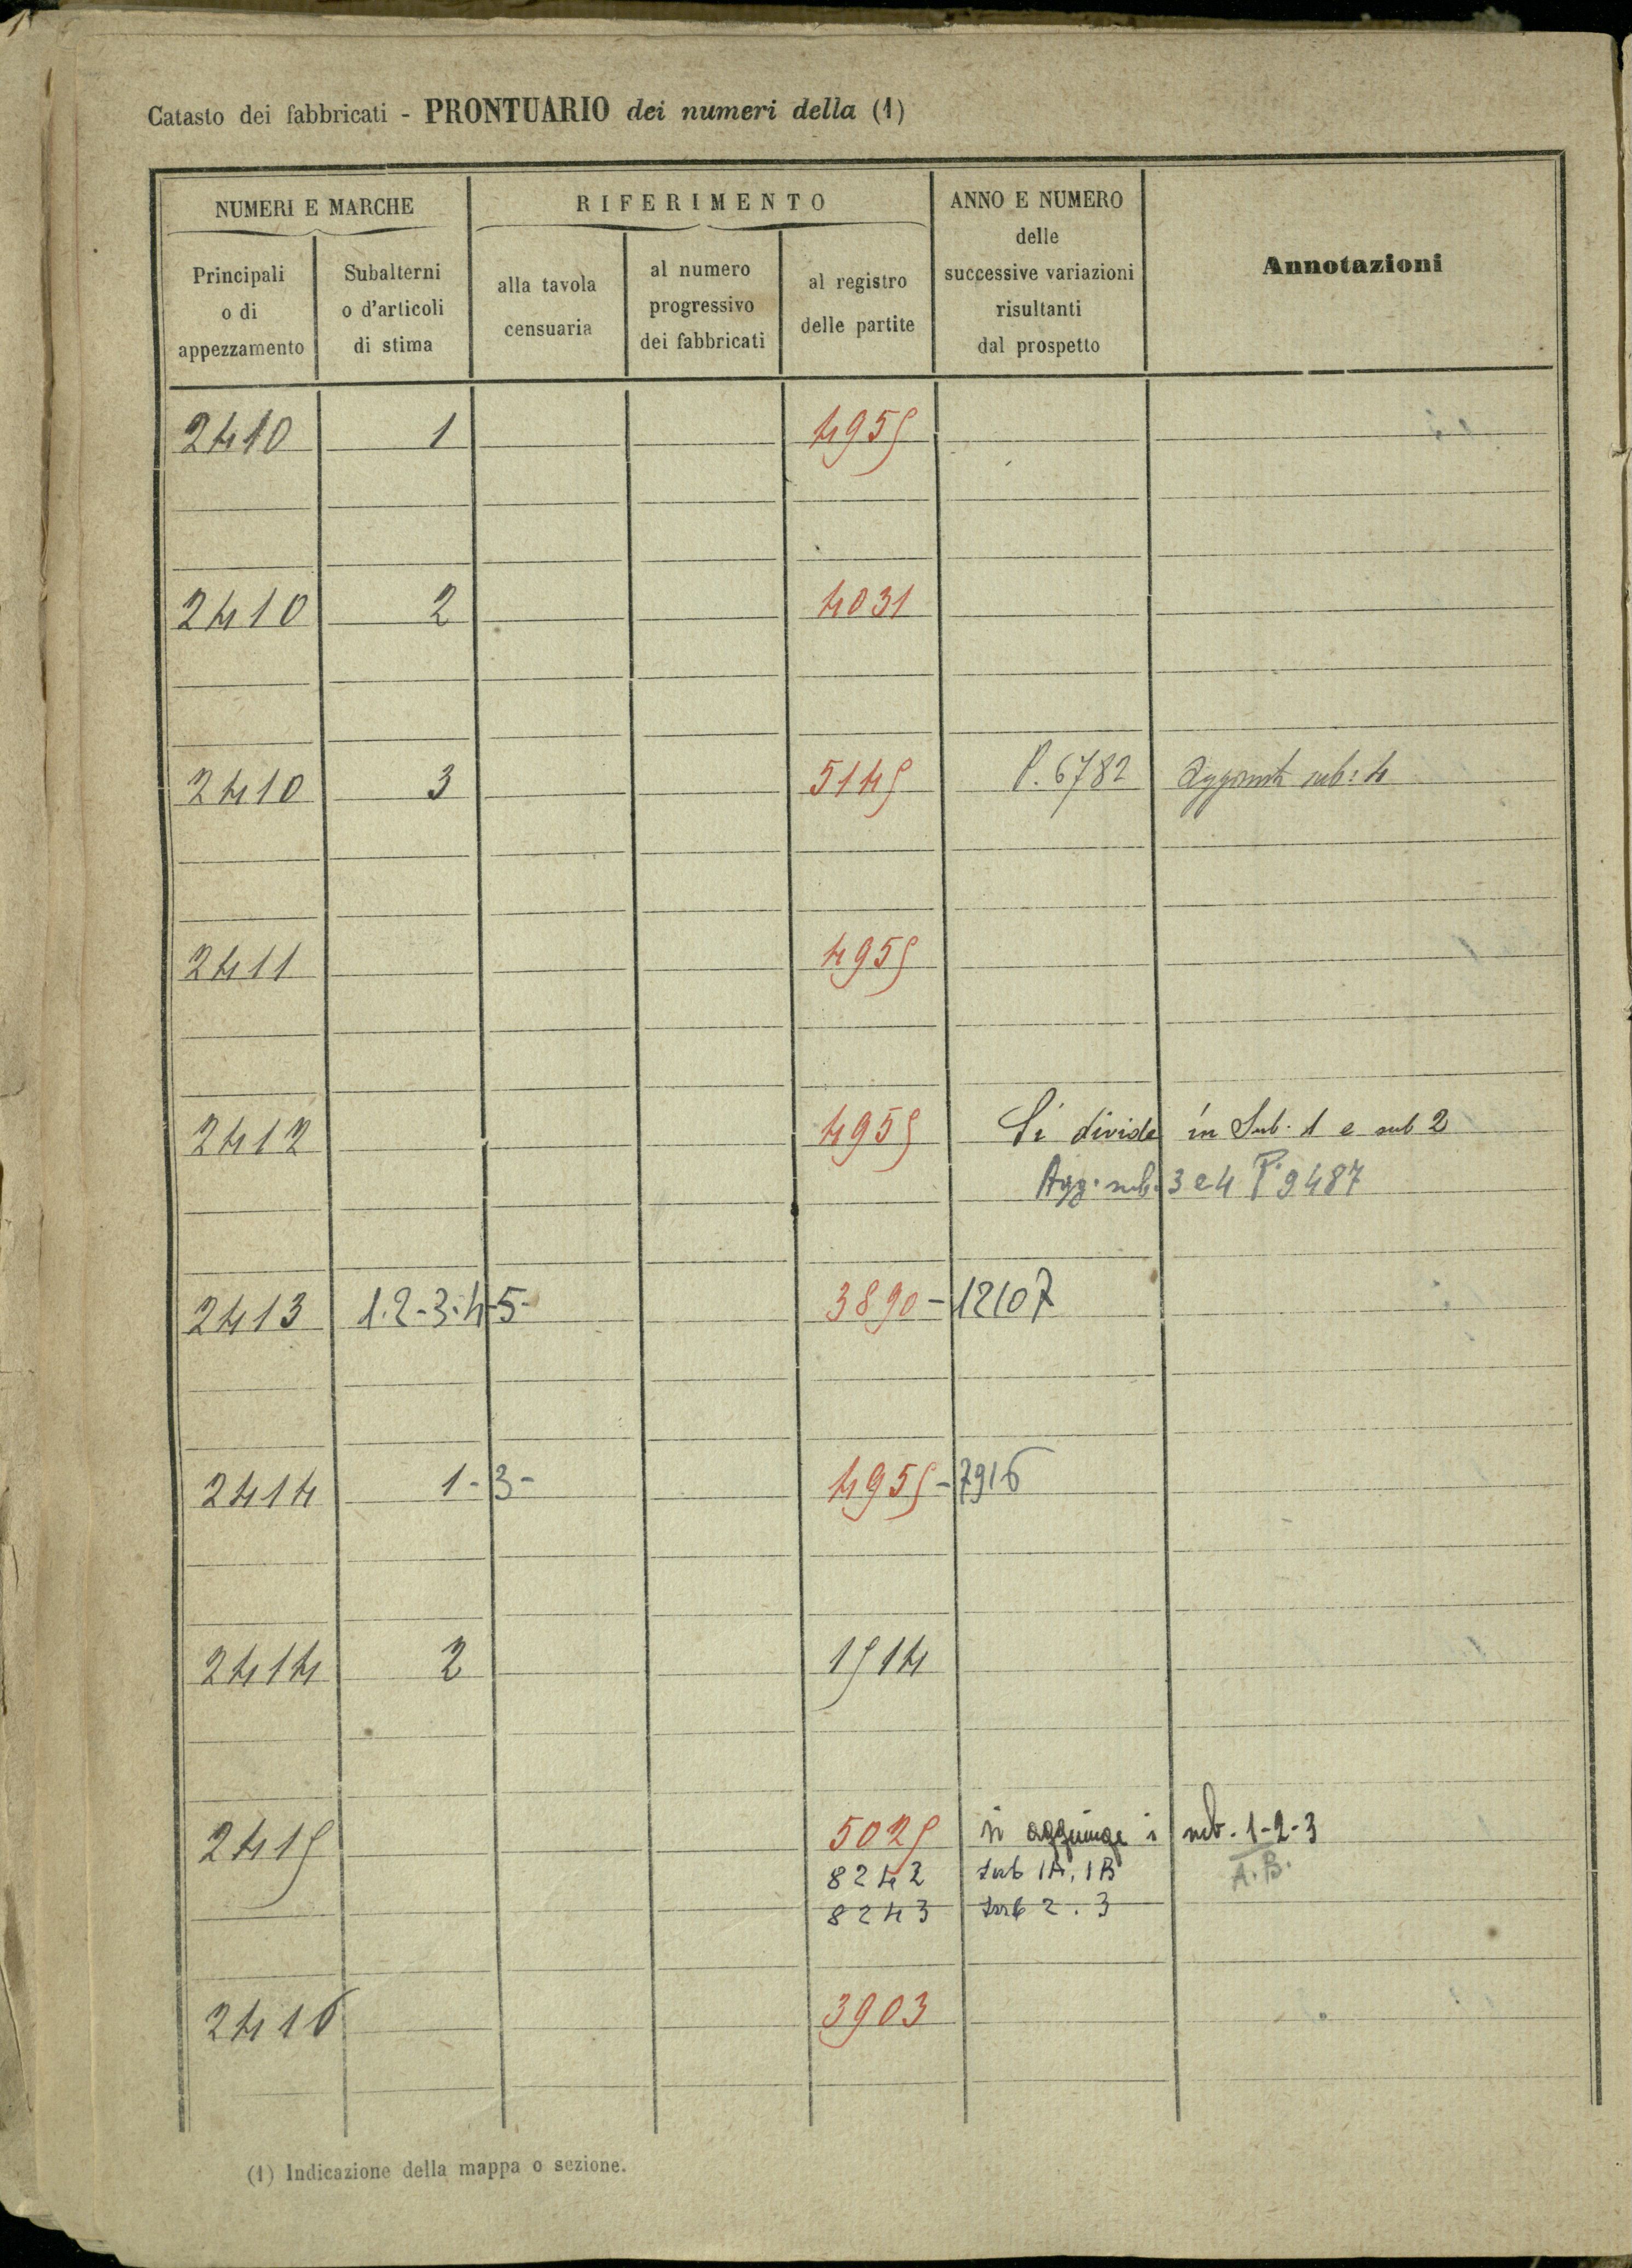 Catasto dei fabbricati - PRONTUARIO dei numeri della (1)
NUMERI E MARCHE
RIFERIMENTO
ANNO E NUMERO
delle
successive variazioni
risultanti
dal prospetto
Annotazioni
Principali
o di
appezzamento
Subalterni
o d'articoli
di stima
alla tavola
censuaria
al numero
progressivo
dei fabbricati
al registro
delle partite
2410 1 4955
2410 2 4031
2410 3 5145 P. 6782 sub: 4
2411 4955
2412 4955 Si divide in Sub. 1 e sub 2
Agg. sub. 3 e 4 P. 9487
2413 1.2-3.4-5- 3890-12107
2414 1-3- 4955-7916
2414 2 1514
2415 5025 si aggiunge i sub. 1-2-3
8242 sub 1A, 1B A. B.
8243 sub 2. 3
2416 3903
(1) Indicazione della mappa o sezione.